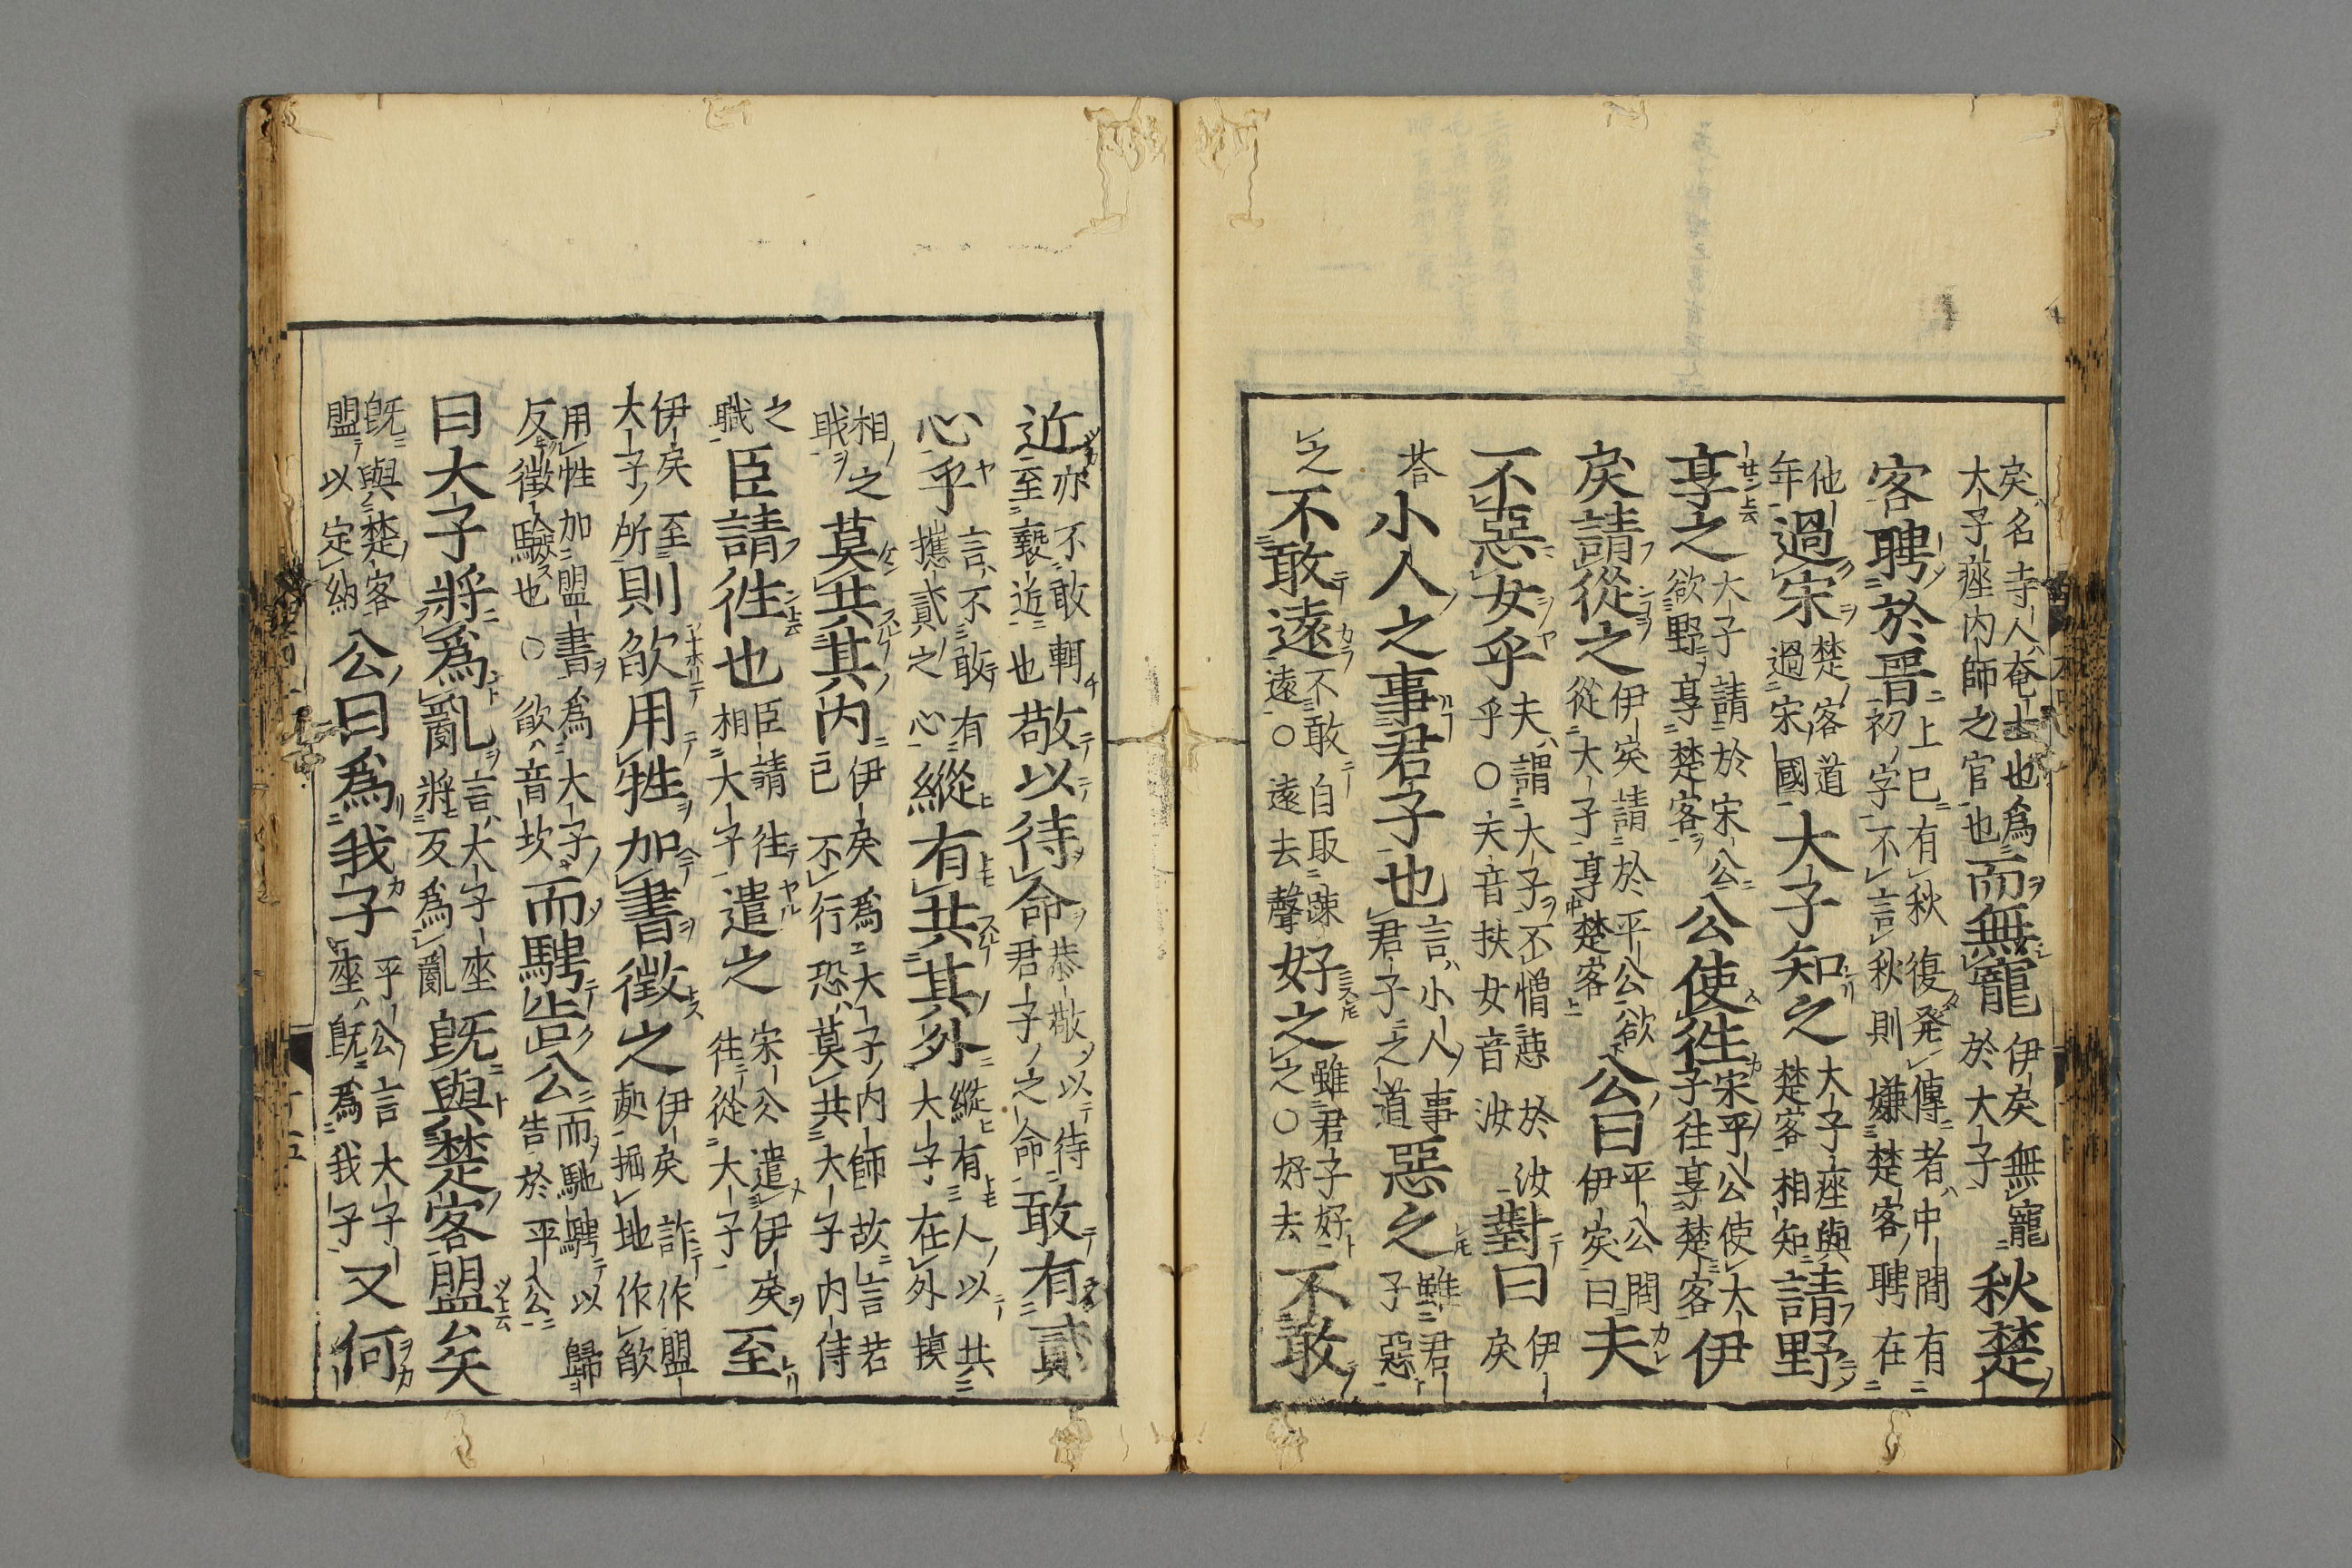 矦名寺人奄士也為大子痤内師之官也而無寵伊矦無寵於大子秋楚
客聘於晋上已有秋復発傳者中間有初字不言秋則嫌楚客聘在
他年過宋楚客道過宋國大子知之大子痤與楚客相知請野
享之大子請於宋公欲野享楚客公使徃宋平公使大子往享楚客伊
戾請從之伊矦請於平公欲從大子享楚客公曰平公問伊矦曰夫
不惡女乎夫謂大子不憎惡於汝乎○夫音扶女音汝對曰伊矦
荅小人之事君子也言小人事君子之道惡之雖君子惡
之不敢遠不敢自取踈遠○遠去聲好之雖君子好之○好去不敢
近亦不敢輙至褻近也敬以待命恭敬以待君子之命敢有貳
心乎言不敢有攜貳之心縱有共其外縱有人以共大子在外
相之職莫共其内伊矦為大子内師故言若己不行恐莫共大子内侍
之職臣請徃也臣請往相大子遣之宋公遣伊矦往從大子至
伊矦至大子所則欿用牲加書徵之伊矦詐作盟處掘地作欿
用牲加盟書為大子反徵驗也○欿音坎而騁告公而馳騁以歸告於平公
曰大子將爲亂言大子座將反為亂既與楚客盟矣
既與楚客盟以定約公曰爲我子平公言大子座既為我子又何
十五